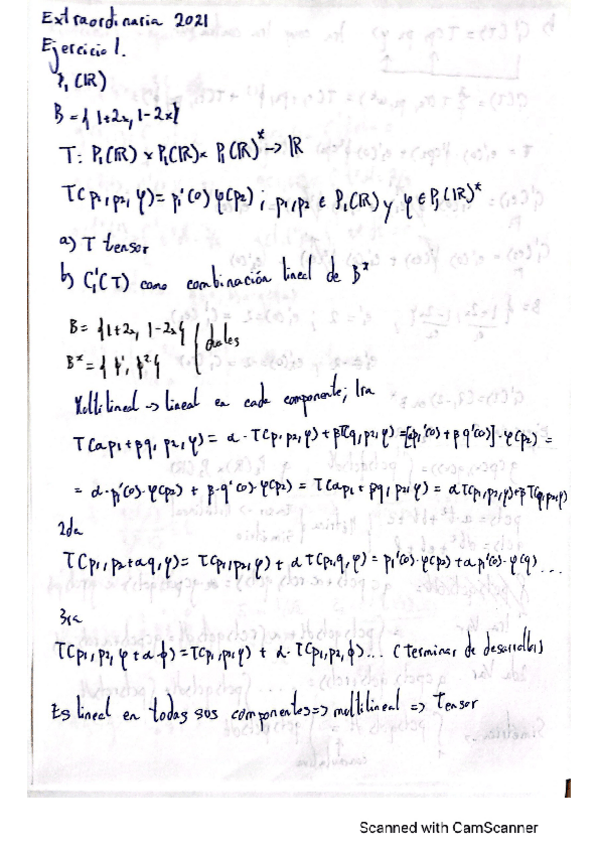 Extraordinaria 2021
Ejercicio 1.
P₁(ℝ)
B={1+2x, 1-2x}
T: P₁(ℝ) x P₁(ℝ) x P₁(ℝ)* → ℝ
T(p₁, p₂, φ) = p₁'(0) φ(p₂) ; p₁, p₂ ∈ P₁(ℝ) y φ ∈ P₁(ℝ)*
a) T tensor
b) C₁¹(T) como combinación lineal de B*
B={1+2x, 1-2x}
B*={β¹, β²}
duales
Multilineal → lineal en cada componente; 1ra
T(αp₁+βq, p₂, φ) = α·T(p₁, p₂, φ) + βT(q, p₂, φ) = [αp₁'(0) + βq'(0)]·φ(p₂) =
= α·p₁'(0)·φ(p₂) + β·q'(0)·φ(p₂) = T(αp₁ + βq, p₂, φ) = αT(p₁, p₂, φ)+βT(q, p₂, φ)
2da
T(p₁, p₂+αq, φ) = T(p₁, p₂, φ) + αT(p₁, q, φ) = p₁'(0)·φ(p₂) + αp₁'(0)·φ(q) ...
3ra
T(p₁, p₂, φ+αϕ) = T(p₁, p₂, φ) + α·T(p₁, p₂, ϕ) ... (terminar de desarrollar)
Es lineal en todas sus componentes => multilineal => Tensor
Scanned with CamScanner